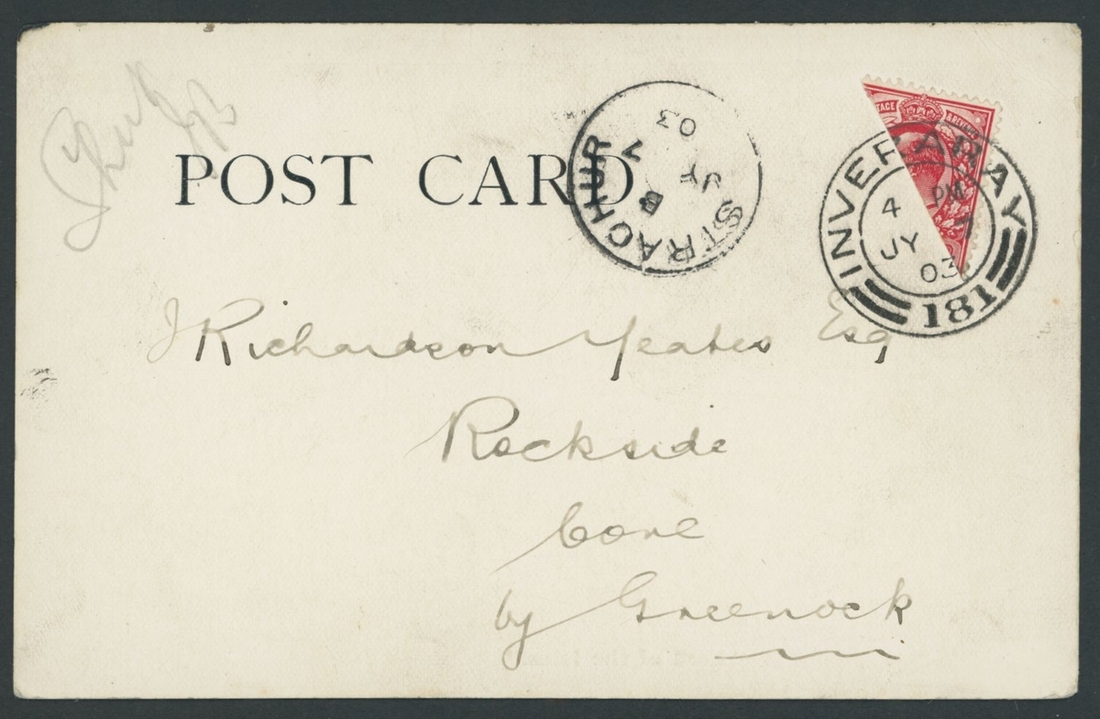 POST CARD
STRACHUR
B
JY 7
03
POSTAGE & REVENUE
INVERARAY
4 PM
JY 7
03
181
J Richardson Yeates Esq
Rockside
Cove
by Greenock